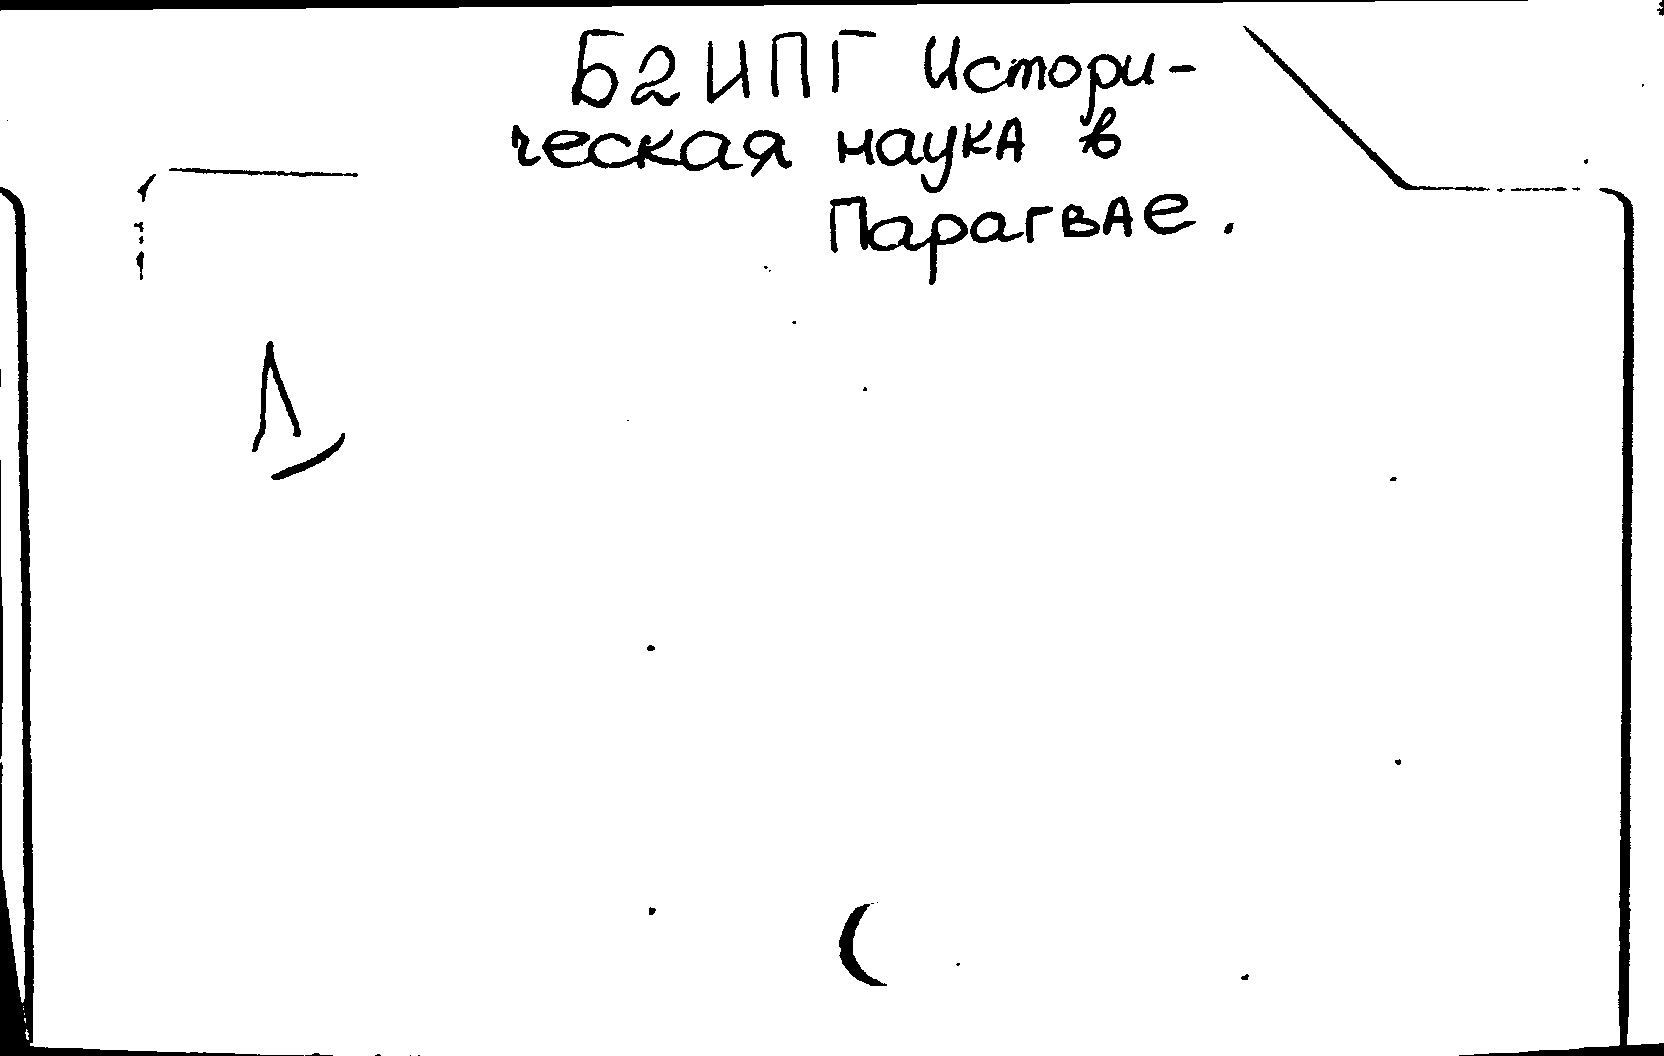 Б2ИПГ Истори-
ческая наука в
Парагвае.